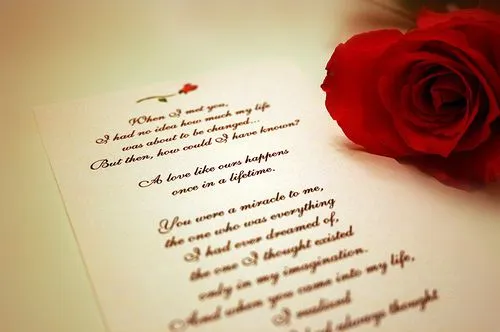 When I met you,
I had no idea how much my life
was about to be changed...
But then, how could I have known?
A love like ours happens
once in a lifetime.
You were a miracle to me,
the one who was everything
I had ever dreamed of,
the one I thought existed
only in my imagination.
And when you came into my life,
I realized
always thought